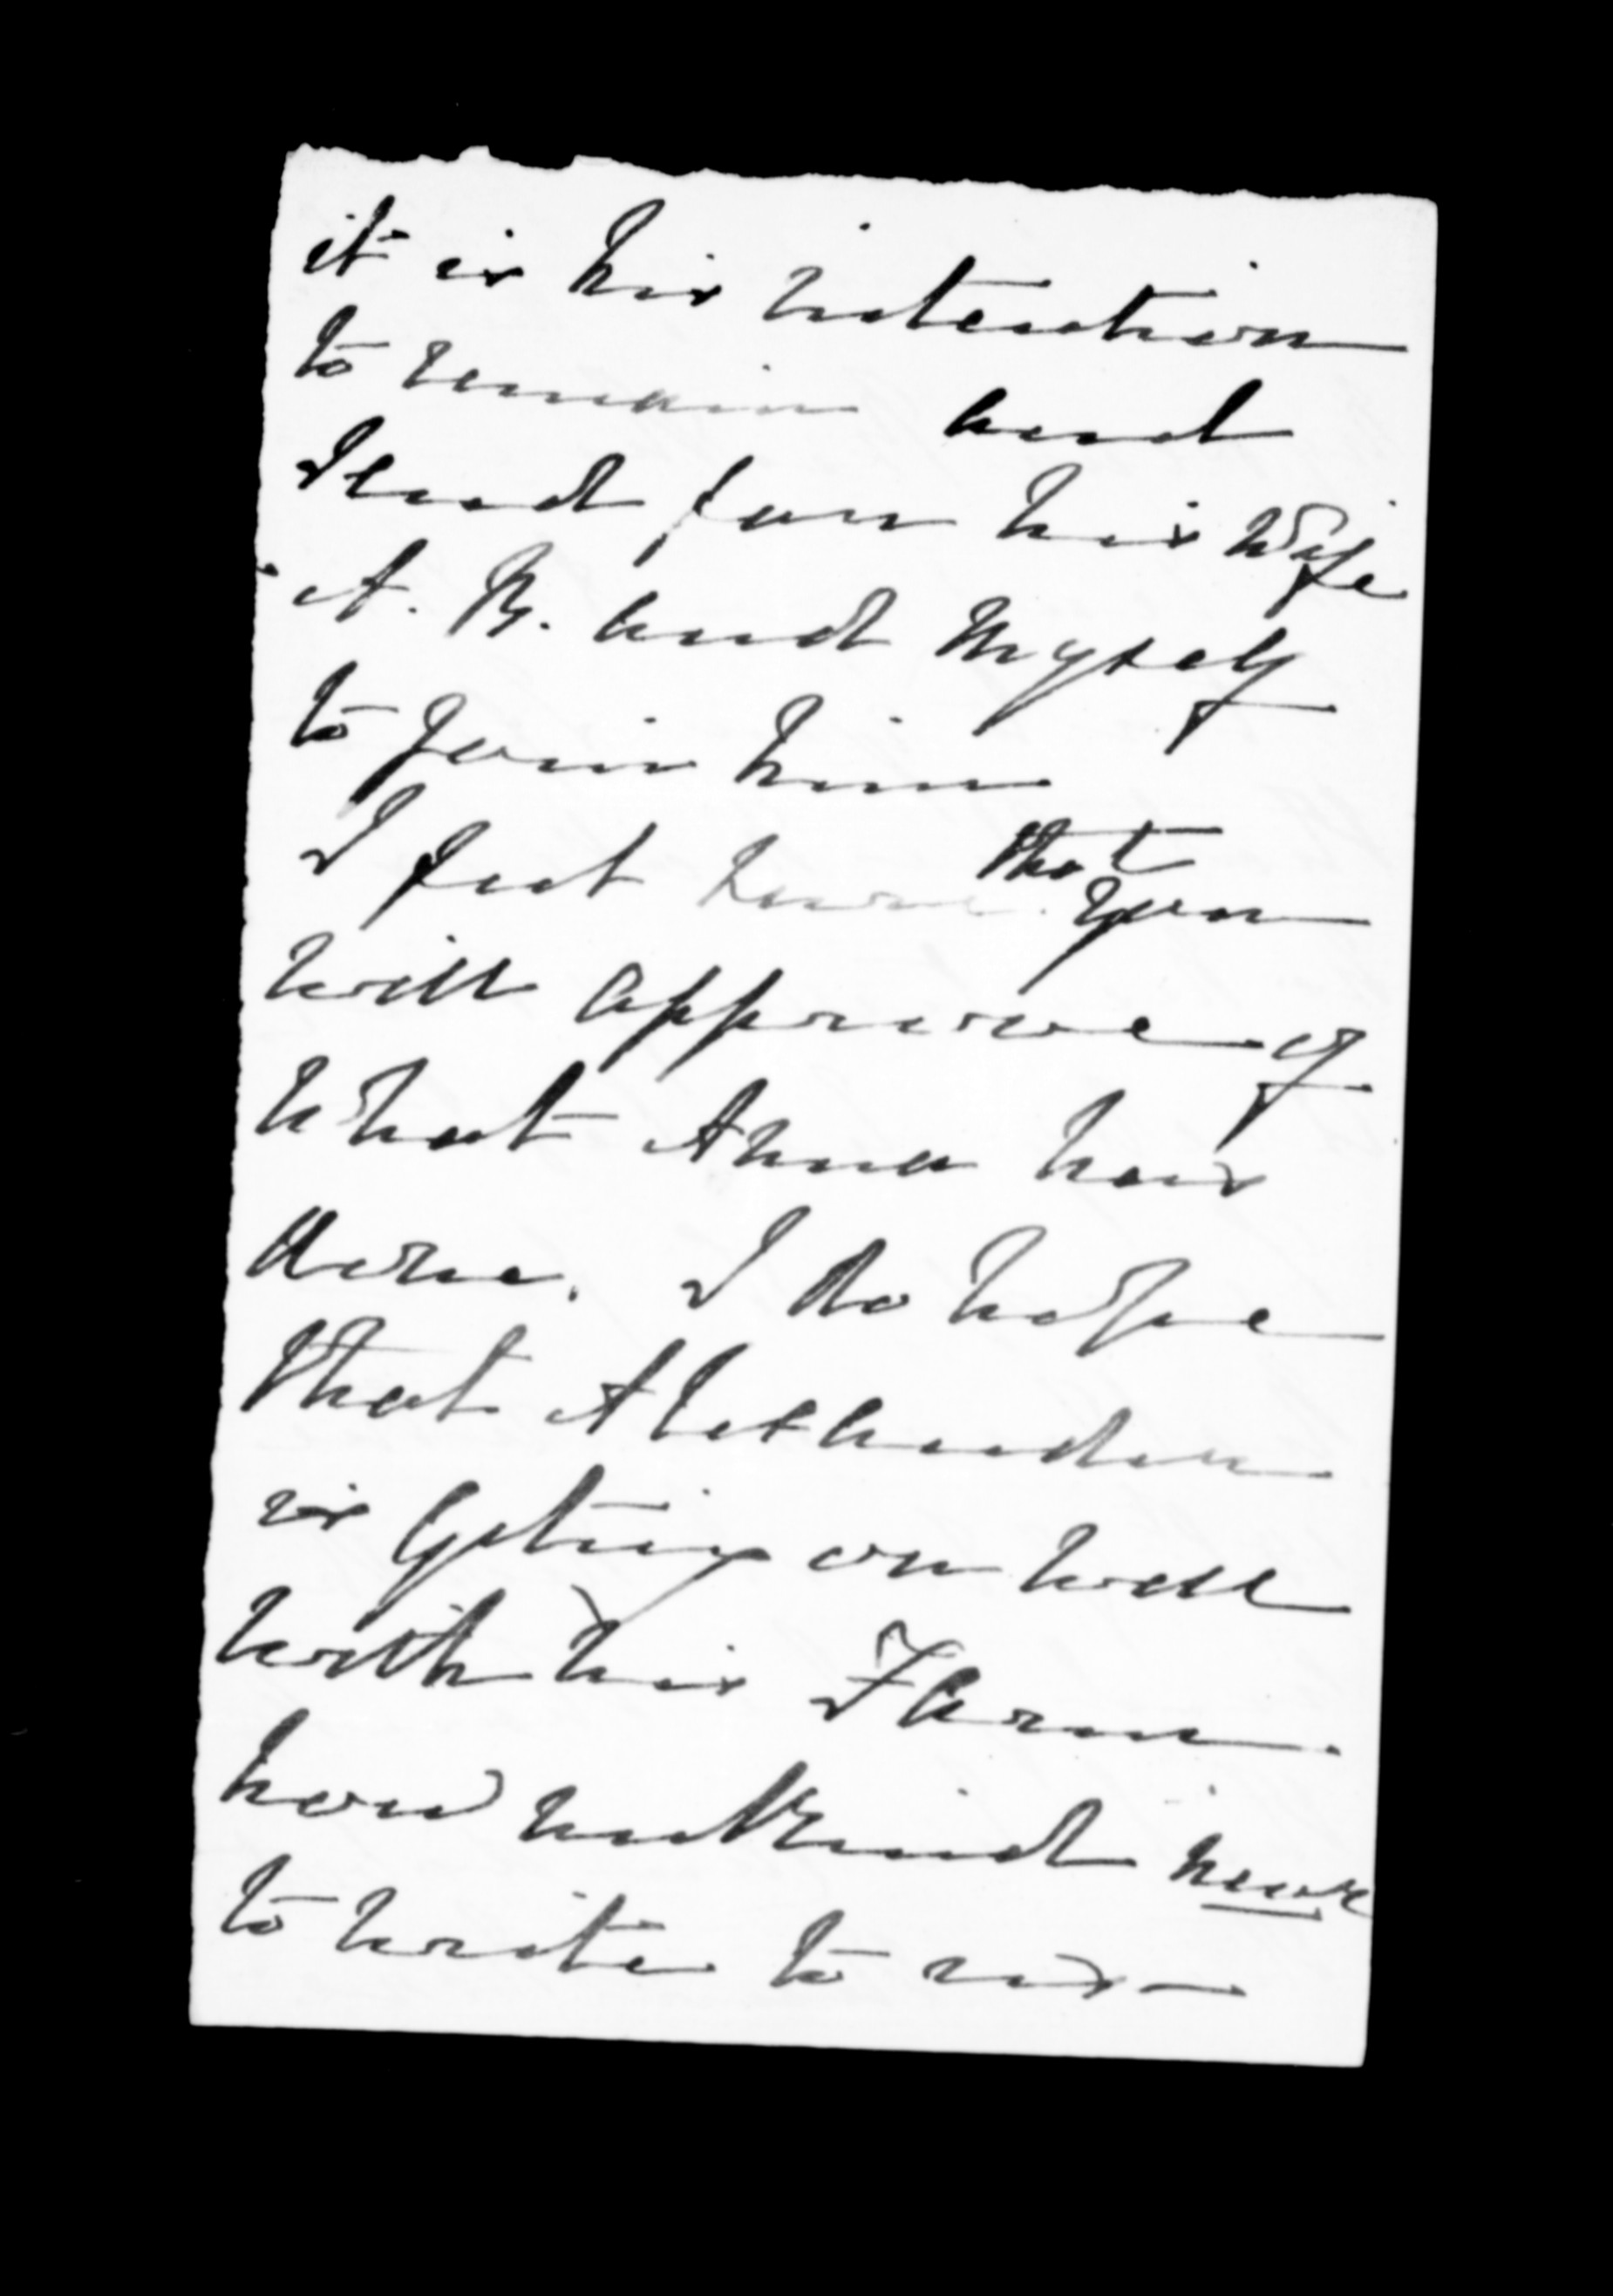 it is his intention
to remain and
Send for his Wife
A. B. and Myself
to join him
I feel that you
will approve of
What Anna has
done. I do hope
that Alexander
is Getting on well
with his Farm.
how unkind never
to write to us —